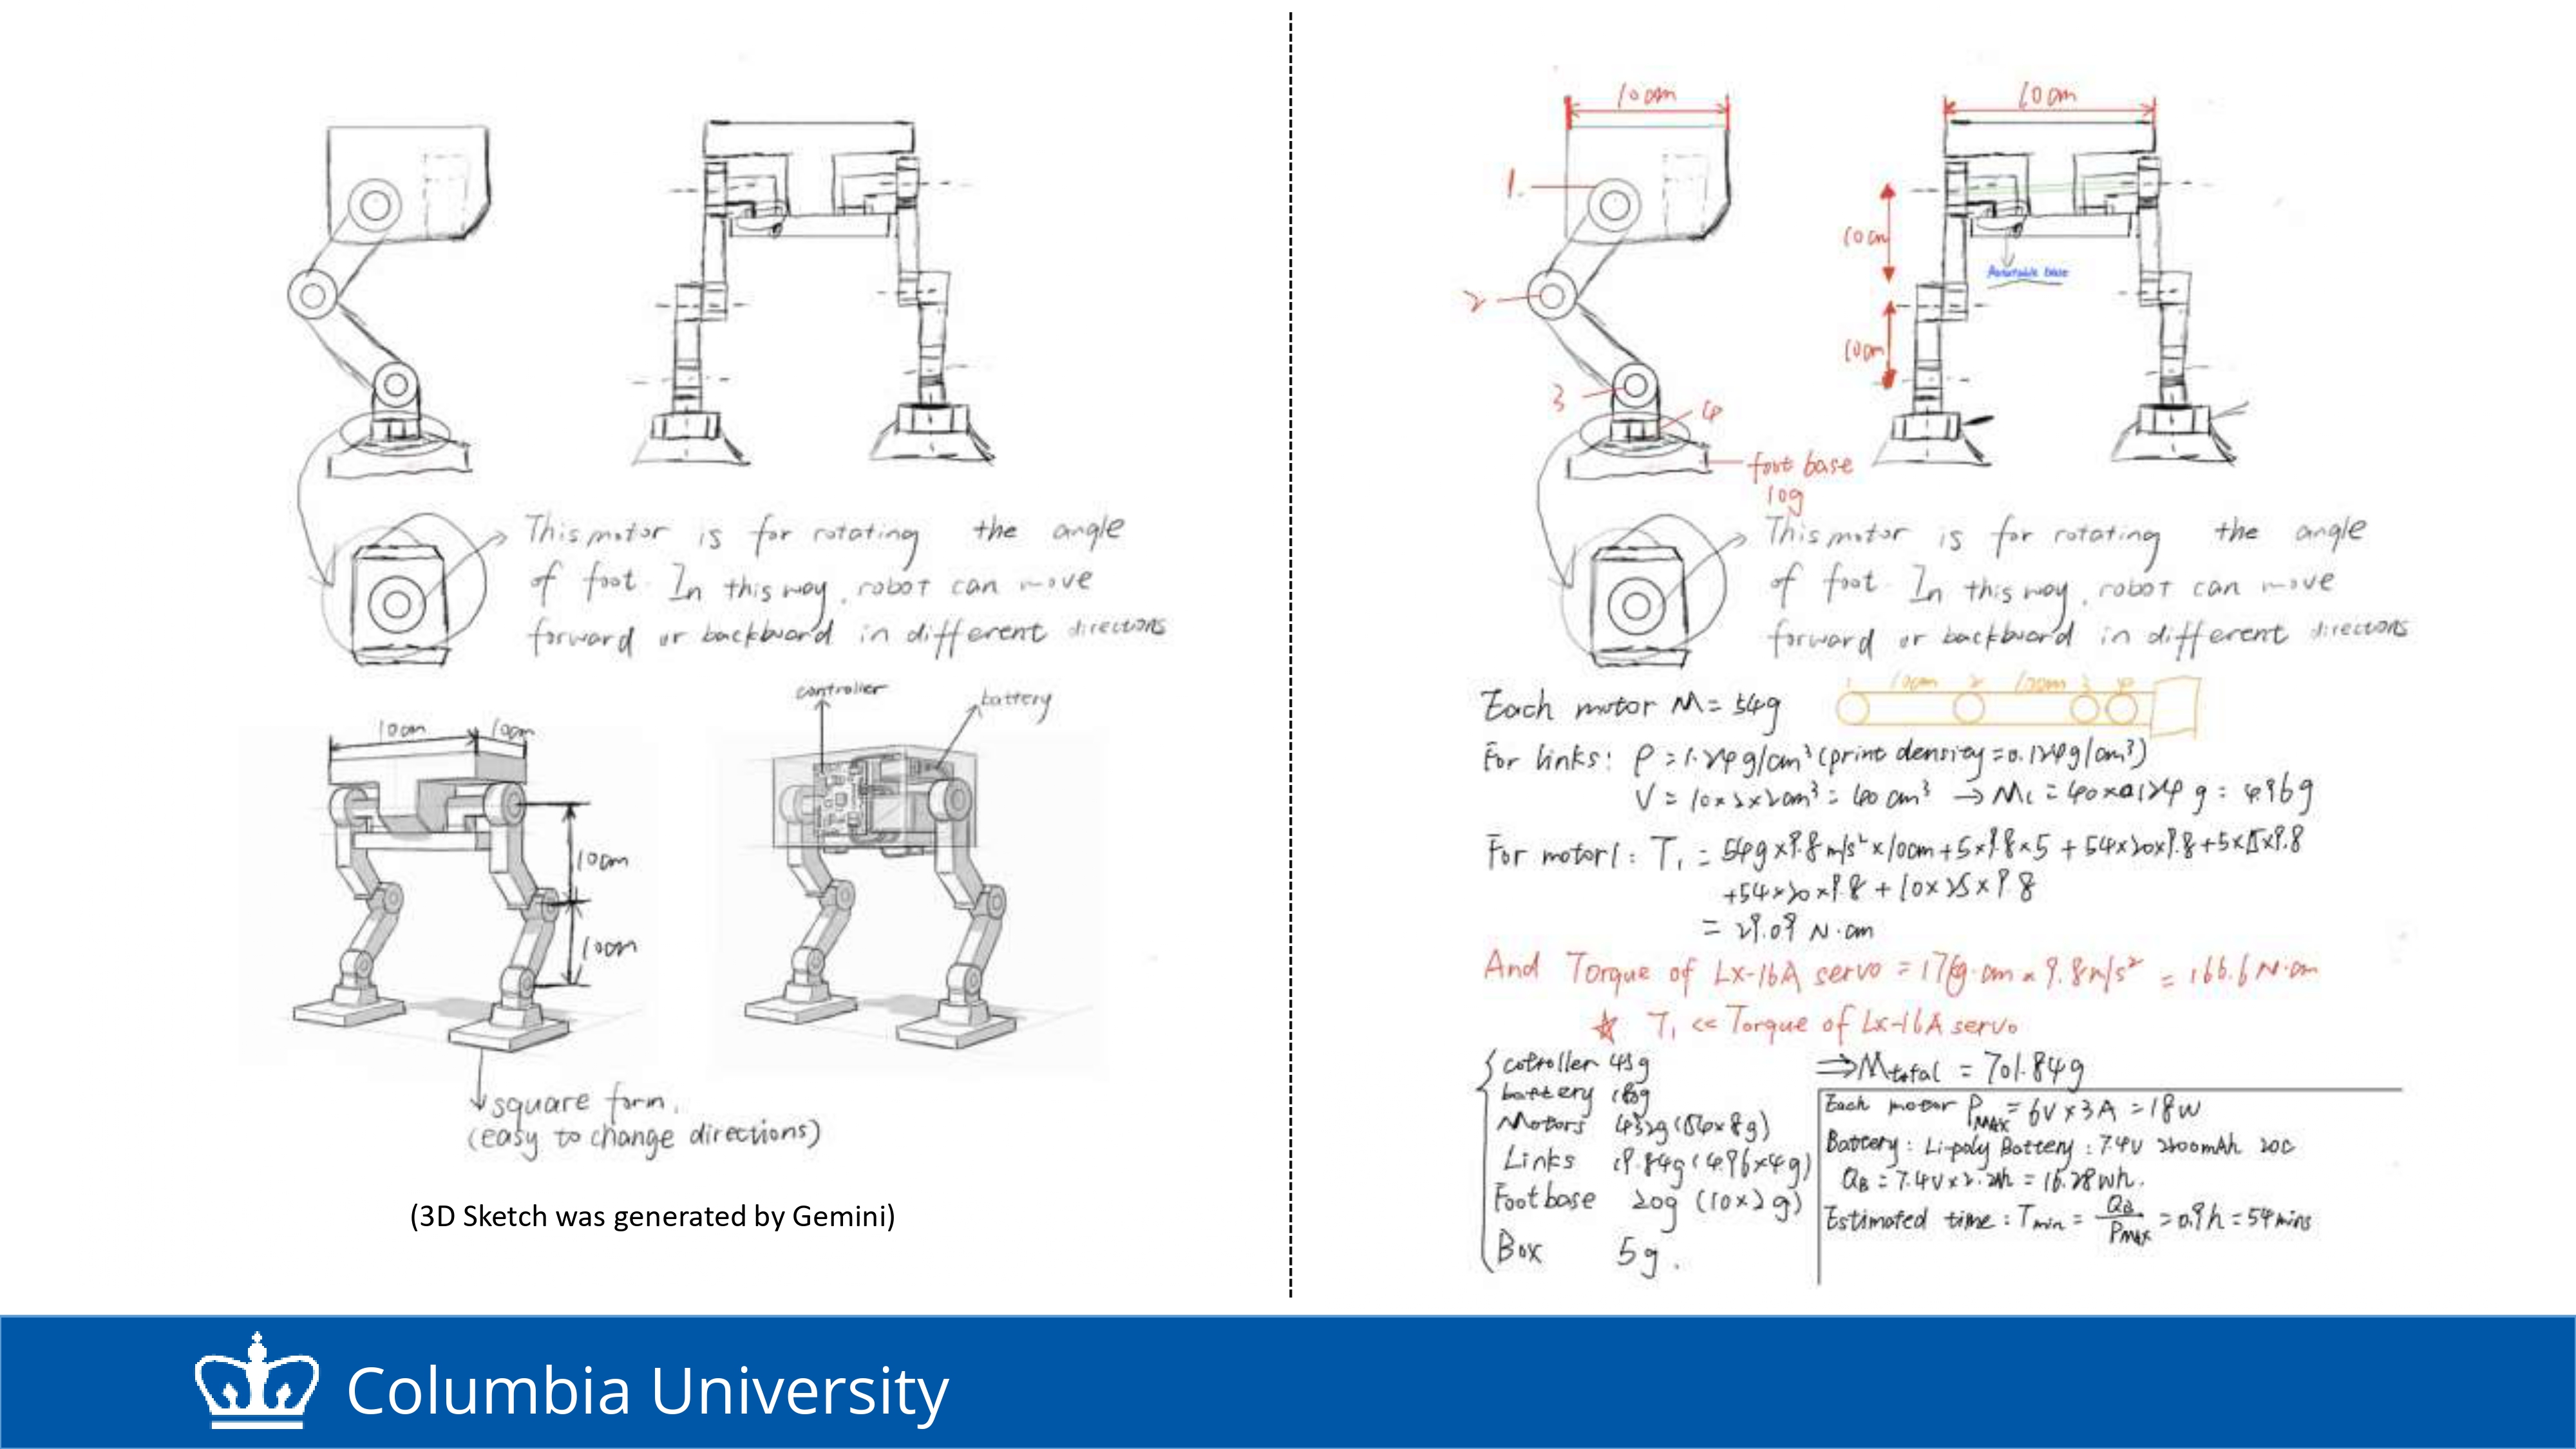 This motor is for rotating the angle
of foot. In this way, robot can move
forward or backward in different directions
controller
battery
10cm
10cm
10cm
10cm
square form.
(easy to change directions)
(3D Sketch was generated by Gemini)
10cm
10cm
1.
2
3
4
10cm
10cm
foot base
10g
This motor is for rotating the angle
of foot. In this way, robot can move
forward or backward in different directions
1 10cm 2 10cm 3 4
Each motor M = 54g
For links: ρ = 1.24g/cm³ (print density = 0.124g/cm³)
V = 10×2×2cm³ = 40cm³ → M = 40×0.124g = 4.96g
For motor1: T₁ = 54g×9.8m/s²×10cm+5×9.8×5 + 54×20×9.8+5×15×9.8
+54×20×9.8 + 10×25×9.8
= 29.09 N·cm
And Torque of Lx-16A servo = 17kg·cm × 9.8m/s² = 166.6N·cm
☆ T₁ << Torque of Lx-16A servo
cotroller 45g
battery
Motors 432g (54×8g)
Links 19.84g (4.96×4g)
Foot base 20g (10×2g)
Box 5g.
⇒ Mtotal = 701.84g
Each motor PMAX = 6V×3A = 18W
Battery: Li-poly Battery: 7.4V 2200mAh 20C
QB = 7.4V×2.2Ah = 16.28Wh.
Estimated time: Tmin = QB/PMAX = 0.9h = 54mins
Columbia University